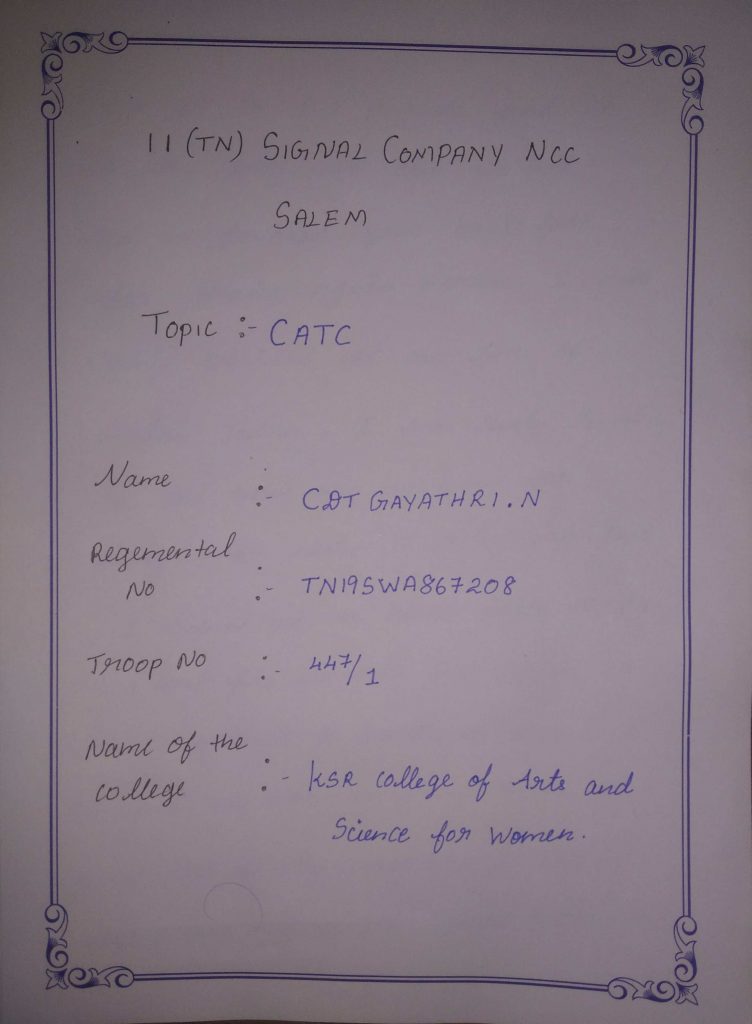 11 (TN) SIGNAL COMPANY NCC
SALEM
Topic :- CATC
Name :- CDT GAYATHRI.N
Regemental
No :- TN19SWA867208
Troop No :- 447/1
Name of the
college :- KSR College of Arts and
Science for Women.